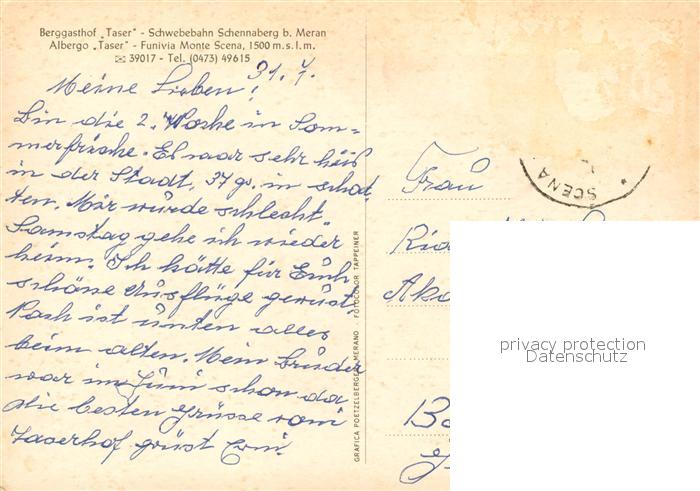 Berggasthof „Taser" - Schwebebahn Schennaberg b. Meran
Albergo „Taser" - Funivia Monte Scena, 1500 m. s. l. m.
✉ 39017 - Tel. (0473) 49615
31. 7.
Meine Lieben!
Bin die 2. Woche in Som=
merfrische. Es war sehr heiß
in der Stadt, 37 gr. in schat=
ten. Mir wurde schlecht.
Samstag gehe ich wieder
heim. Ich hätte für Euch
schöne Ausflüge gewüst.
Noch ist unten alles
beim alten. Mein Bruder
war im Juni schon da
die besten Grüsse vom
Taserhof grüst
GRAFICA POETZELBERGER, MERANO FOTOCOLOR TAPPEINER
SCENA
Frau
privacy protection
Datenschutz